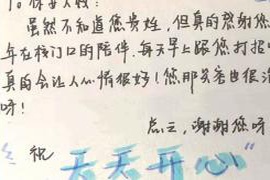 To 保安大叔:
虽然不知道您贵姓,但真的感谢您
年在校门口的陪伴,每天早上跟您打招
真的会让人心情很好!您那笑容也很治
呀!
点三,谢谢您呀
祝
天天开心